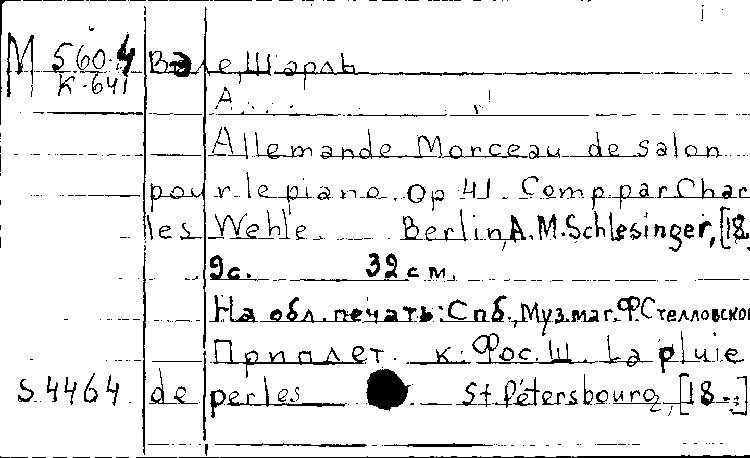 М 560.4 Вале, Шарль
К-641
А...
Allemande Morceau de salon
pour le piano. Op 41. Comp. par Char
les Wehle. Berlin, A.M.Schlesinger, [18.
9с. 32 см.
На обл. печать: Спб., Муз.маг. Ф.Стелловског
Приплет. к: Фос. Ш. La pluie
S 4464 de perles St. Pétersbourg, [18-]